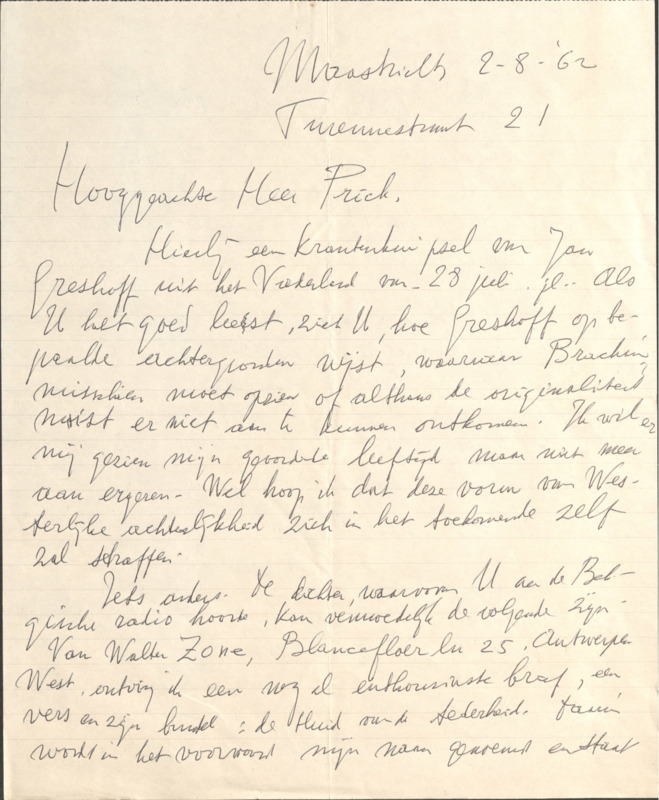 Maastricht 2-8-'62
Turennestraat 21
Hooggeachte Heer Prick,
Hierbij een krantenknipsel van Jan
Greshoff uit het Vaderland van 28 juli j.l. Als
U het goed leest, ziet U, hoe Greshoff op be-
paalde achtergronden wijst, waarvan
misschien moet of althans de originaliteit
mist er niet aan te kunnen ontkomen. Ik wil er
mij gezien mijn gevorderde leeftijd maar niet meer
aan ergeren. Wel hoop ik dat deze vorm van Wes-
terlijke achterlijkheid zich in het toekomende zelf
zal straffen.
Iets anders. De dichter, waarvoor U aan de Bel-
gische radio hoorde, kan vermoedelijk de volgende zijn.
Van Walter Zone, Blancefloer ln 25, Antwerpen
West, ontving ik een nog al enthousiaste brief, een
vers en zijn bundel: de Huid van de tederheid. Daarin
wordt in het voorwoord mijn naam genoemd en staat